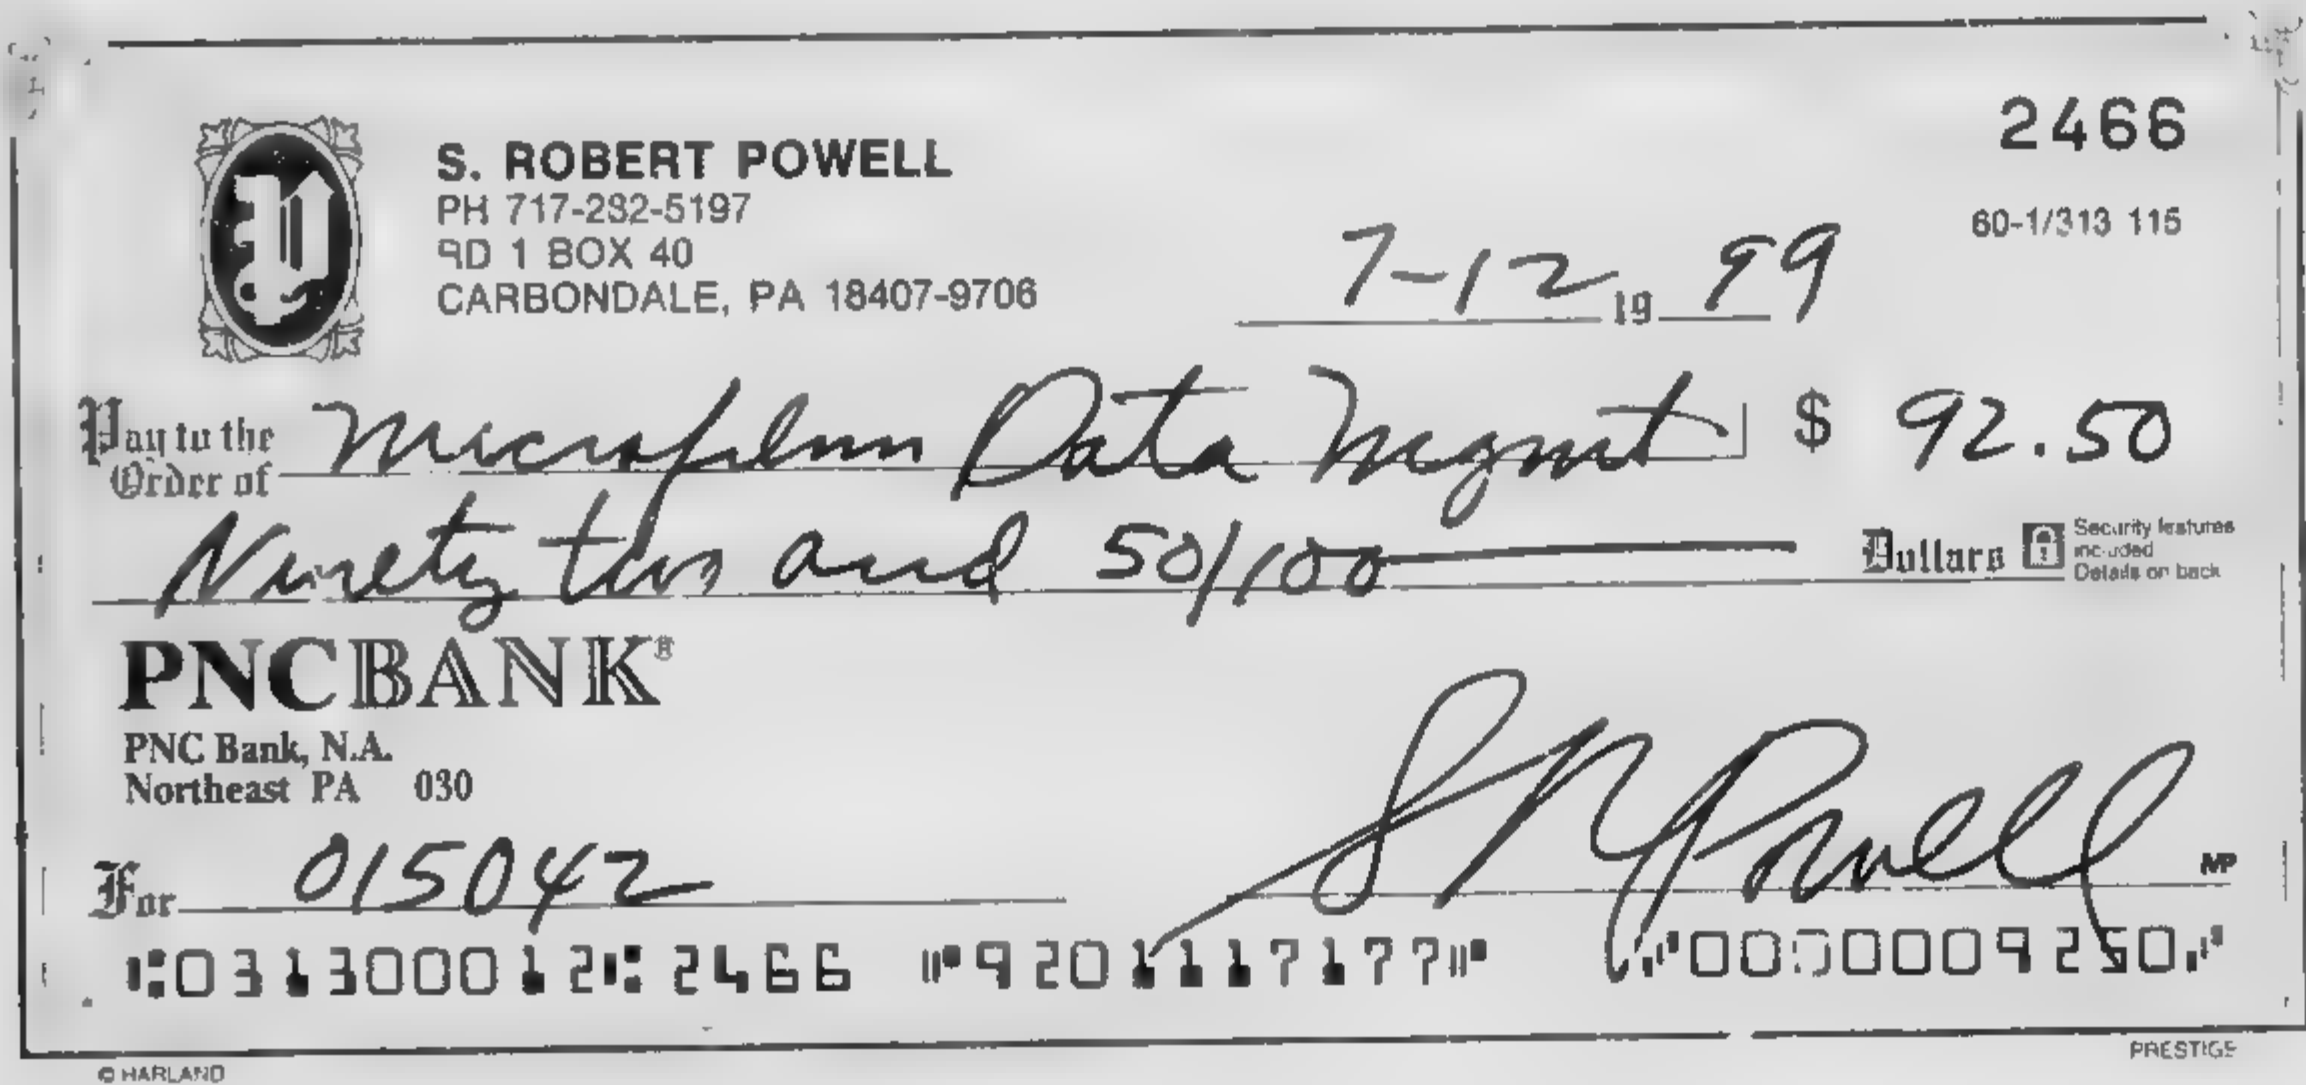 2466
S. ROBERT POWELL
PH 717-282-5197
RD 1 BOX 40
CARBONDALE, PA 18407-9706
60-1/313 115
7-12 19 99
Pay to the Order of Microfilm Data Mgmt $ 92.50
Ninety two and 50/100 Dollars
Security features included Details on back
PNCBANK®
PNC Bank, N.A.
Northeast PA 030
For 015042 S R Powell MP
⑆031300012⑆ 2466 ⑈9201117177⑈ ⑈0000009250⑈
© HARLAND
PRESTIGE